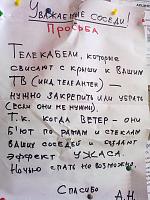 Уважаемые соседи!
Просьба
Телекабели, которые
свисают с крыши к вашим
ТВ (инд. телеантен) —
нужно закрепить или убрать
(если они не нужны)
Т.к. когда ветер - они
бьют по рамам и стеклам
ваших соседей и создают
эффект ужаса.
Ночью спать невозможно.
Спасибо
А.Н.